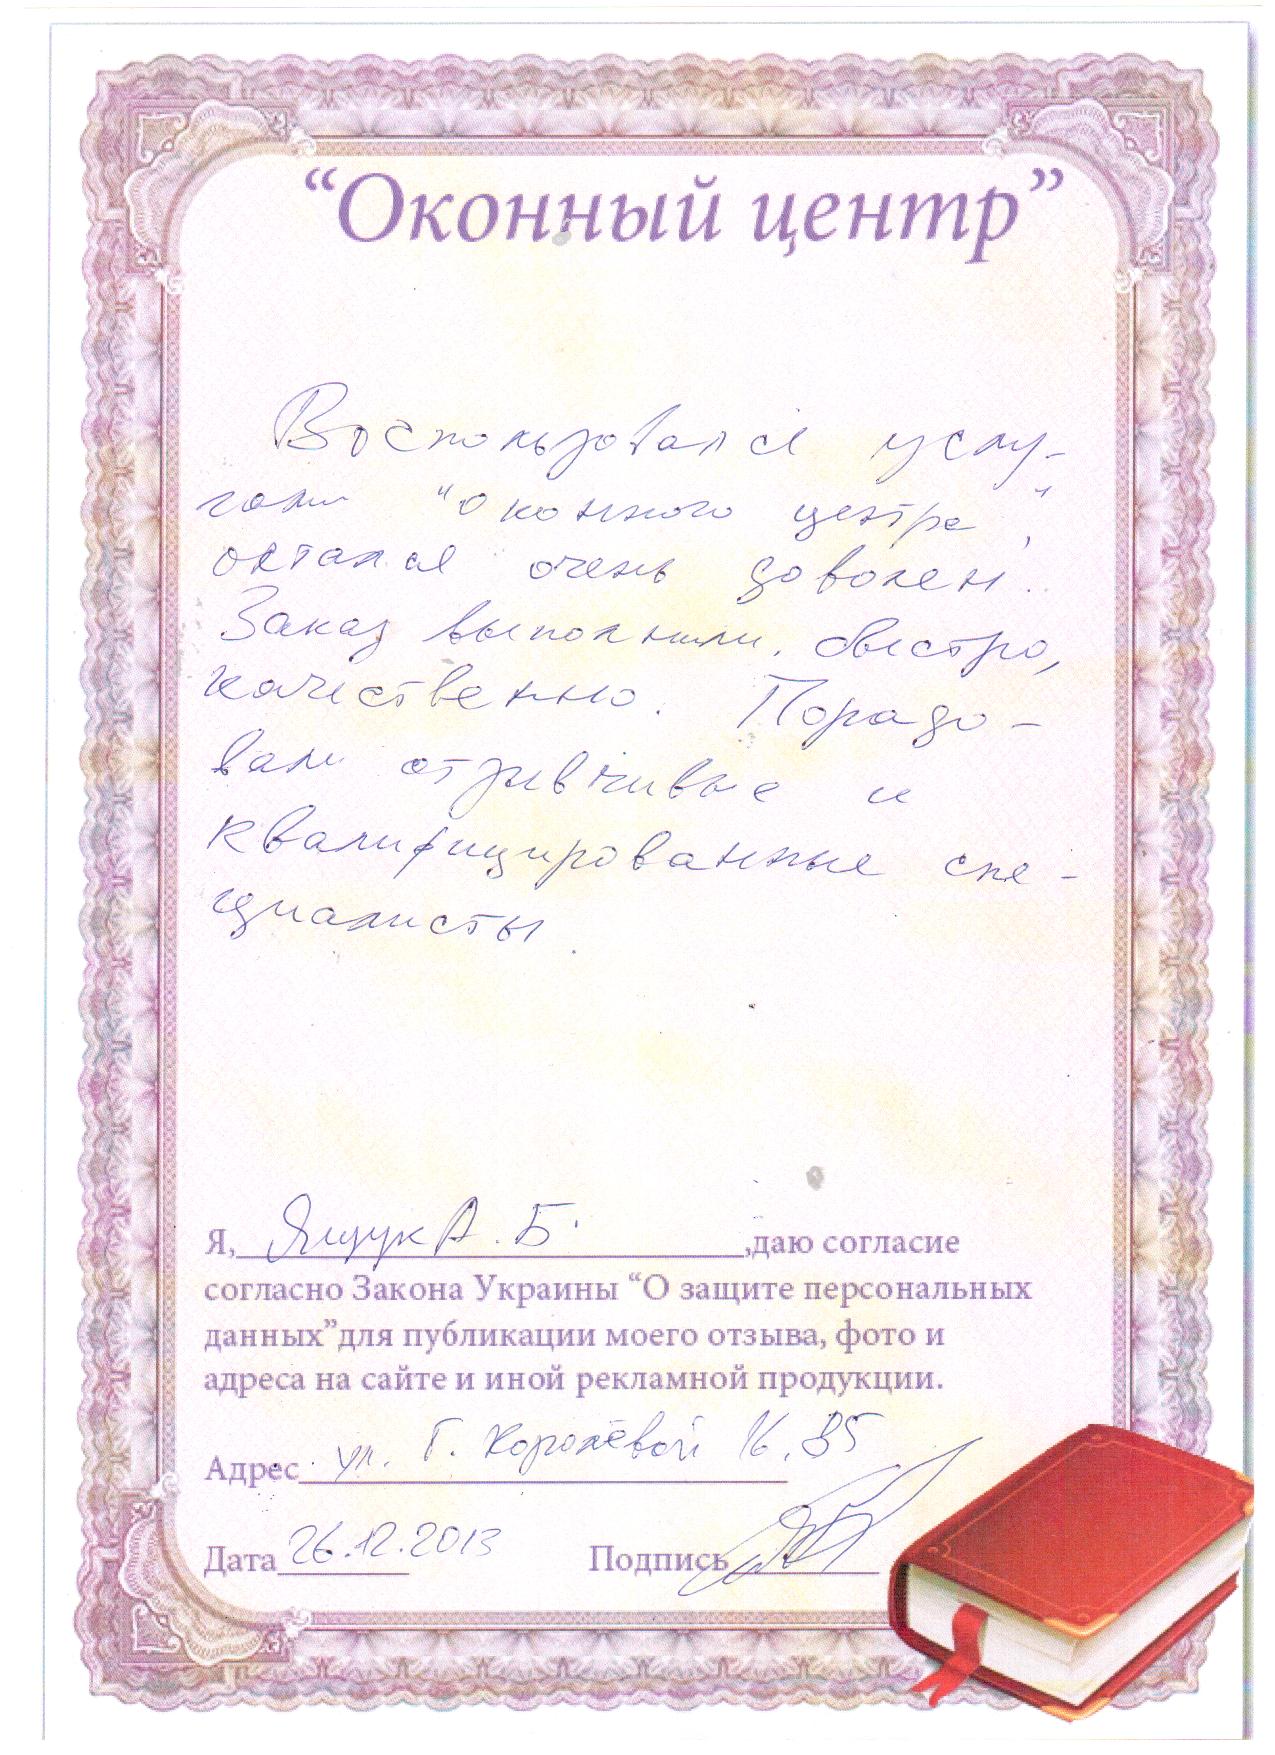 “Оконный центр”
Воспользовался услу-
гами "Оконного центра",
остался очень доволен.
Заказ выполнили быстро,
качественно. Порадо-
вали отзывчивые и
квалифицированные спе-
циалисты.
Я, Ящук А. Б. ,даю согласие
согласно Закона Украины “О защите персональных
данных”для публикации моего отзыва, фото и
адреса на сайте и иной рекламной продукции.
Адрес ул. Г. Королёвой 16, 85
Дата 26.12.2013 Подпись